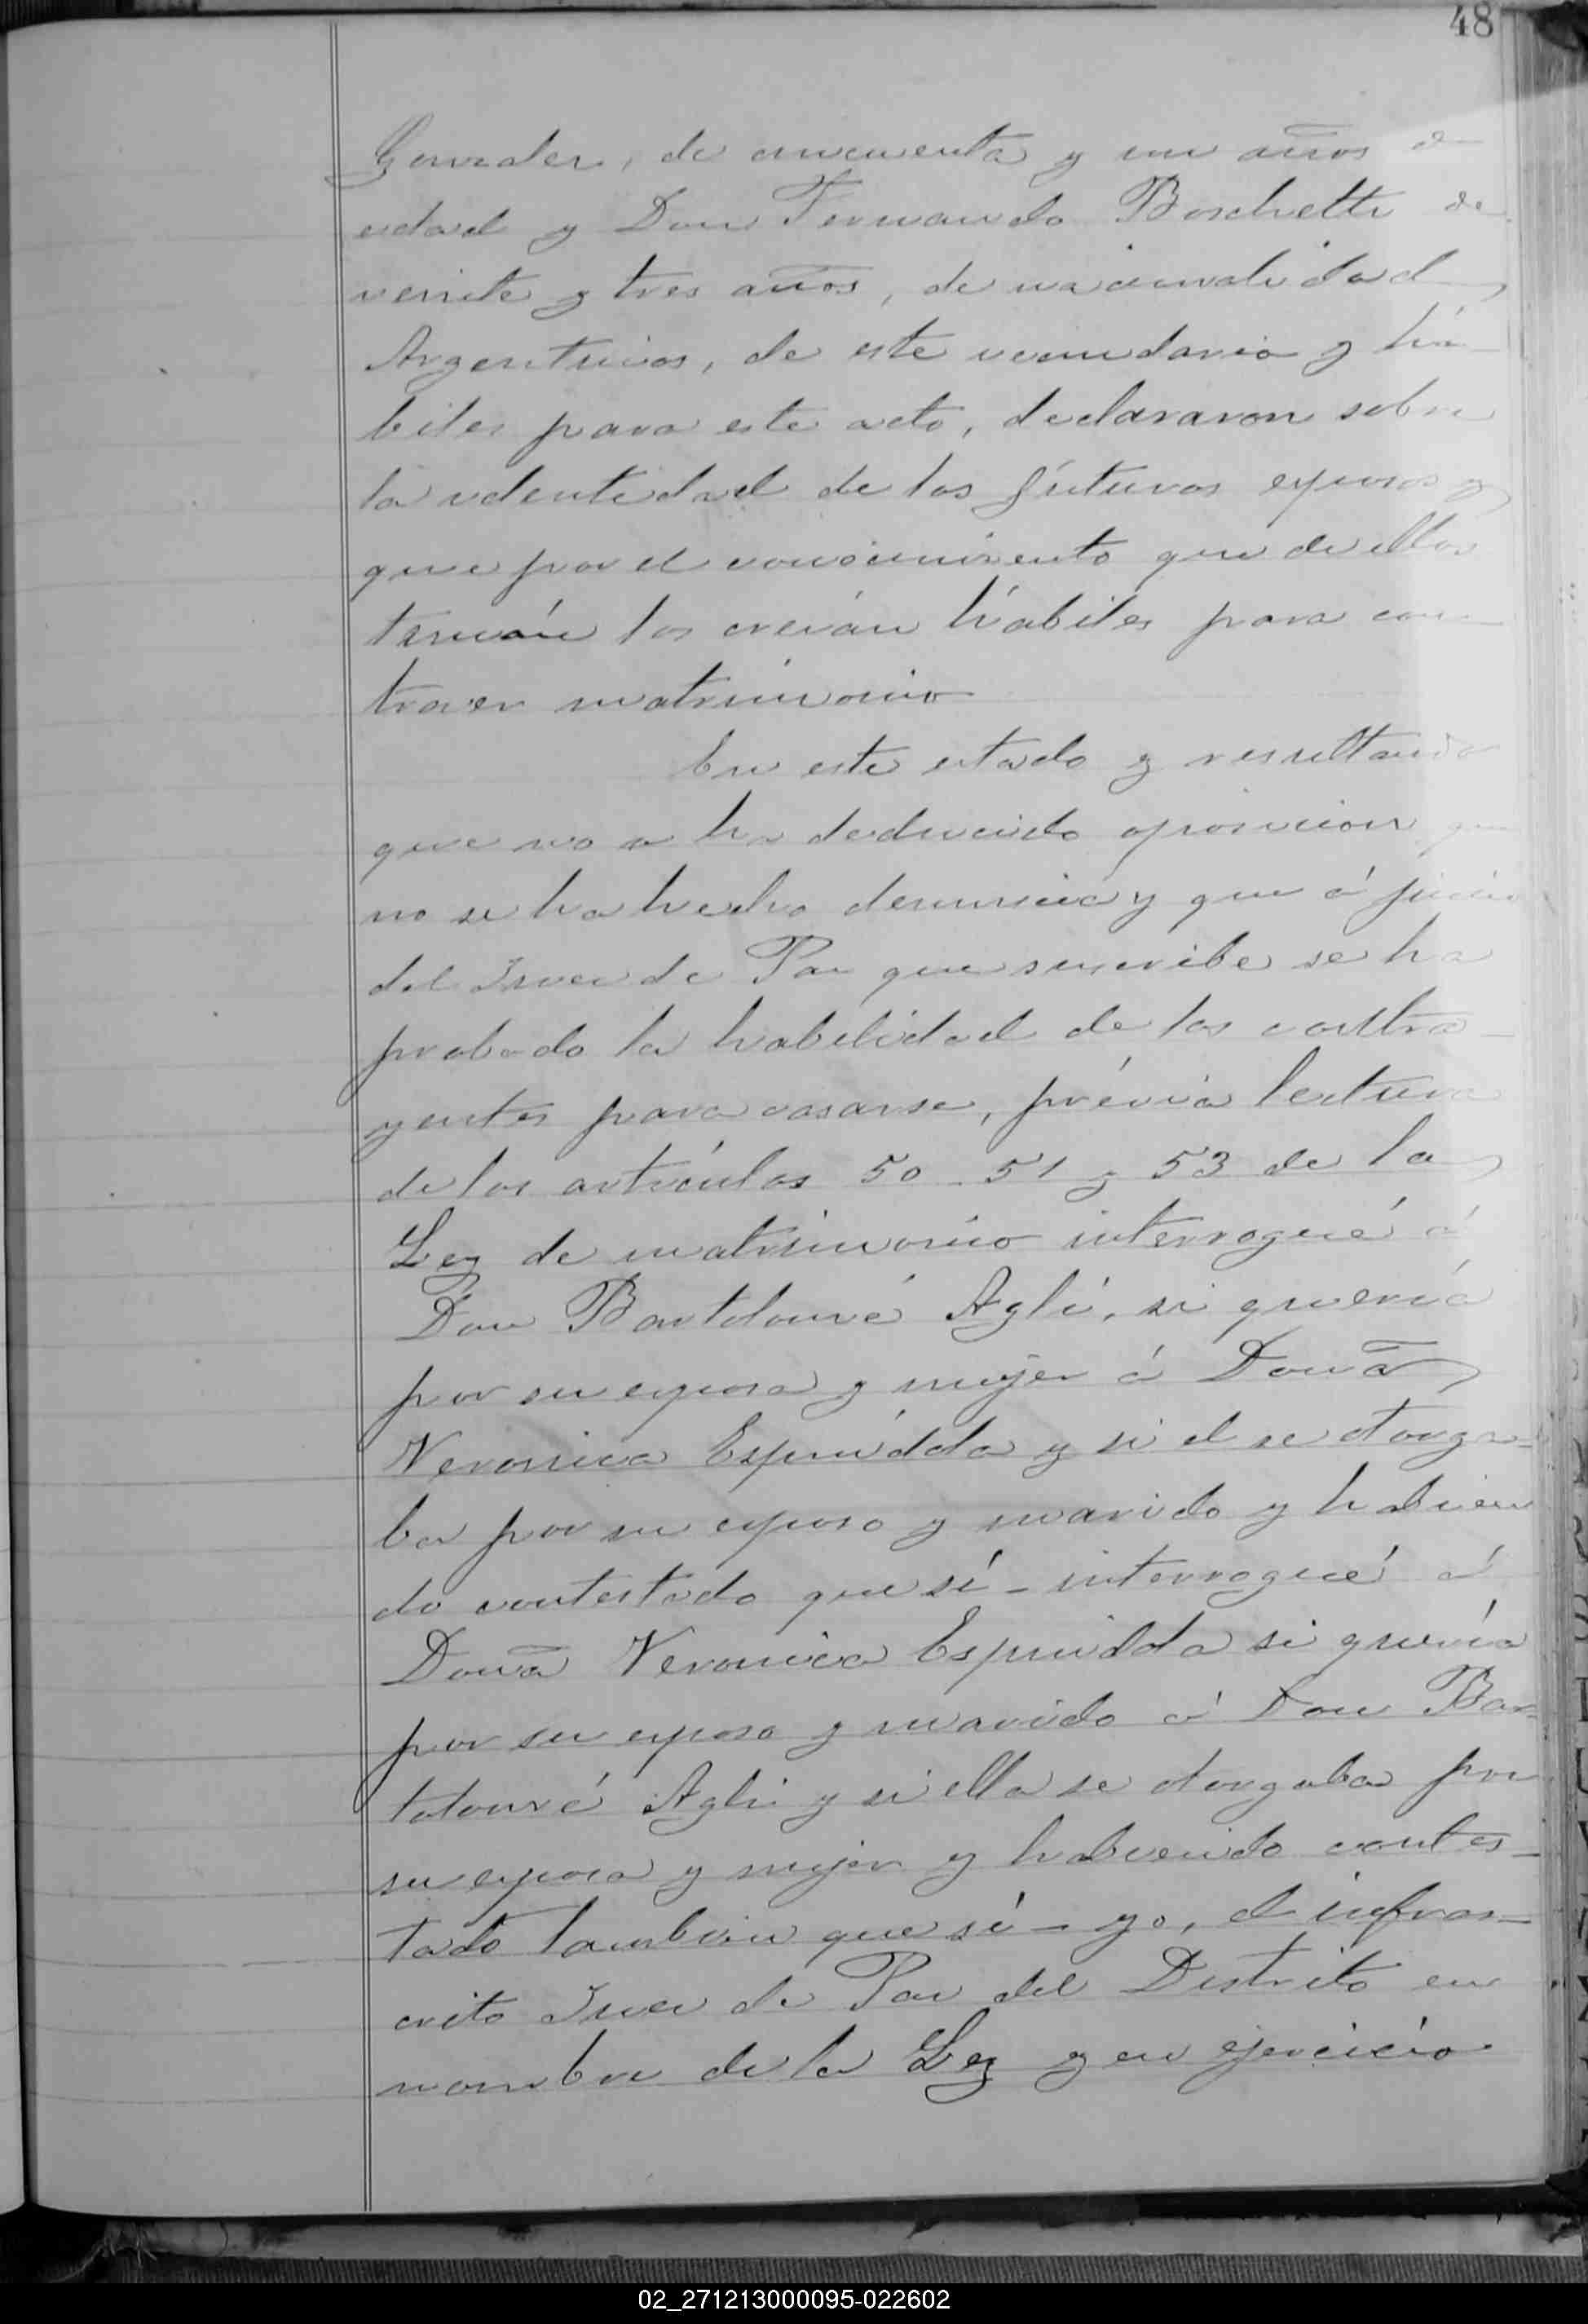 48
Gonzalez, de cincuenta y un años de
edad y Don Fernando Boschetti de
veinte y tres años, de nacionalidad
Argentinos, de este vecindario y há-
biles para este acto, declararon sobre
la identidad de los fúturos esposos y
que por el conocimiento que de ellos
tenían los creían hábiles para con-
traer matrimonio
En este estado y resultando
que no se ha deducido oposicion que
no se ha hecho denuncia y que á juicio
del Juez de Paz que suscribe se ha
probado la habilidad de los contra-
yentes para casarse, prévia lectura
de los artículos 50 - 51 y 53 de la
Ley de matrimonio interrogué á
Don Bartolomé Agli, si quería
por su esposa y mujer á Doña
Veronica Espindda y si el se otorga-
ba por su esposo y marido y habien
do contestado que sí - interrogué á
Doña Veronica Espindda si quería
por su esposo y marido á Don Bar-
tolomé Agli y si ella se otorgaba por
su esposa y mujer y habiendo contes-
tado tambien que sí - yo, el infras-
crito Juez de Paz del Distrito en
nombre de la Ley y en ejercicio
02_271213000095-022602